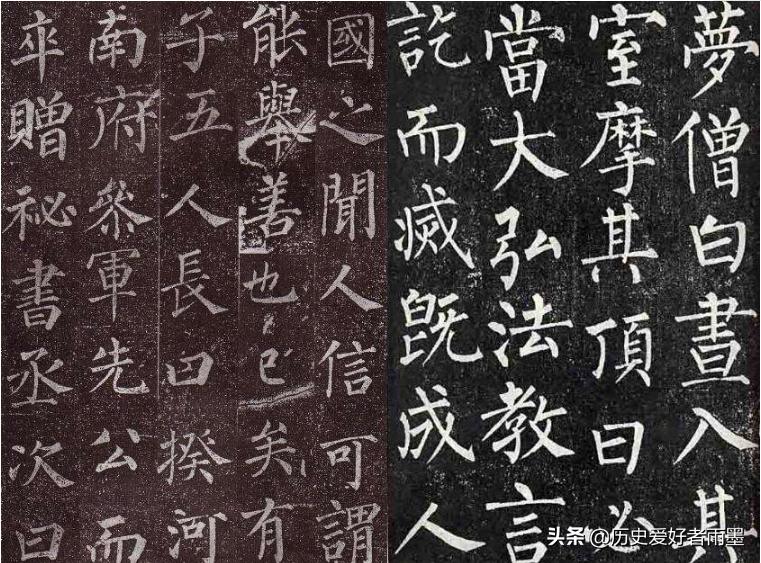 國之聞人信可謂
能舉善也已矣有
子五人長曰揆河
南府叅軍先公而
卒贈祕書丞次曰
夢僧白晝入其
室摩其頂曰必
當大弘法教言
訖而滅既成人
头条 @历史爱好者雨墨